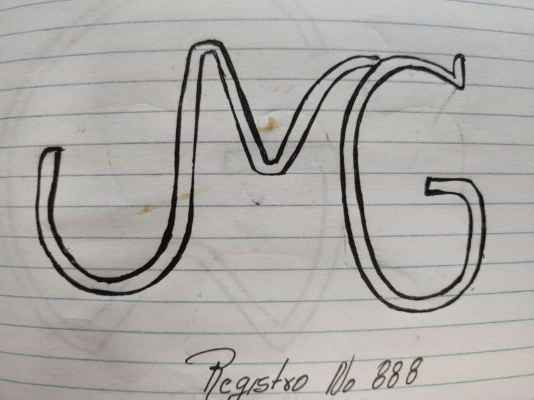 JMG
Registro No 888